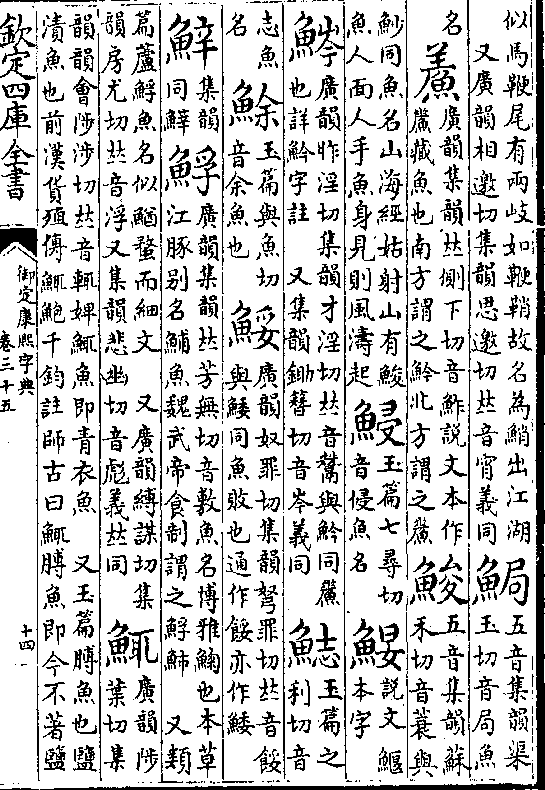 似馬鞭尾有兩岐如鞭鞘故名為鮹出江湖
又廣韻相邀切集韻思邀切𠀤音宵義同
五音集韻渠
玉切音局魚
名
鮺
廣韻集韻𠀤側下切音鮓說文本作
藏魚也南方謂之魿北方謂之
鮻
五音集韻蘇
禾切音蓑與
魦同魚名山海經姑射山有鮻
魚人面人手魚身見則風濤起
玉篇七尋切
音侵魚名
說文鰋
本字
廣韻昨淫切集韻才淫切𠀤音鬵與魿同
也詳魿字註 又集韻鋤簪切音岑義同
玉篇之
利切音
志魚
名
玉篇與魚切
音余魚也
鮾
廣韻奴罪切集韻弩罪切𠀤音餒
與鯘同魚敗也通作餒亦作鯘
集韻
同
䱐
廣韻集韻𠀤芳無切音敷魚名博雅也本草
江豚别名鯆魚魏武帝食制謂之䱐 又類
篇蘆䱐魚名似蝥而細文 又廣韻縛謀切集
韻房尤切𠀤音浮又集韻悲幽切音彪義𠀤同
鮿
廣韻陟
葉切集
韻韻會陟涉切𠀤音輒婢鮿魚即青衣魚 又玉篇膊魚也鹽
漬魚也前漢貨殖傳鮿鮑千鈞註師古曰鮿膊魚即今不著鹽
欽定四庫全書
御定康熙字典
卷三十五
十四